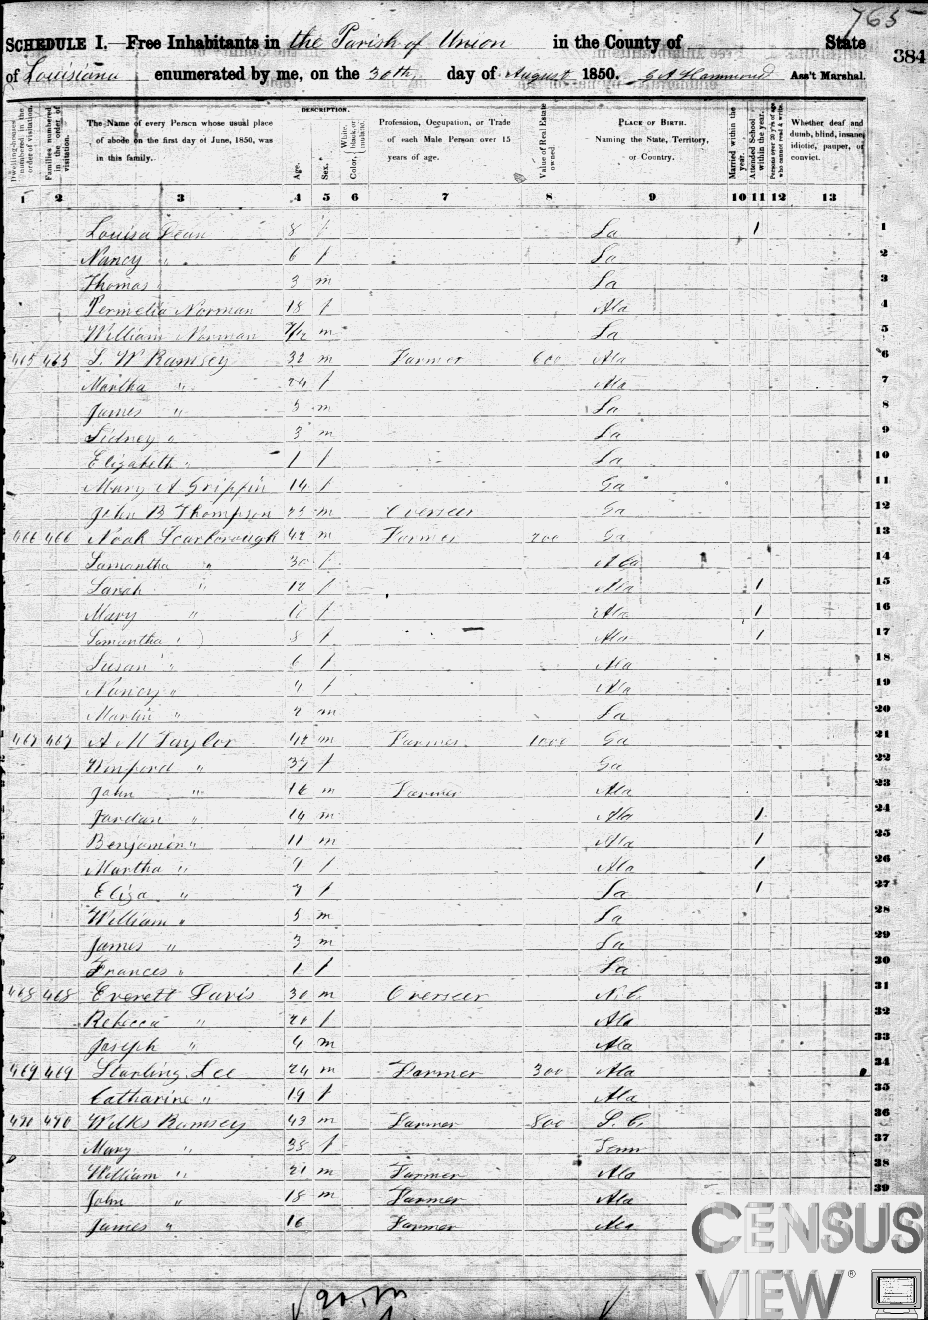 765
SCHEDULE I.—Free Inhabitants in the Parish of Union in the County of State 384
of Louisiana enumerated by me, on the 30th day of August 1850. Ass't Marshal.
Dwelling-houses numbered in the order of visitation.
Families numbered in the order of visitation.
The Name of every Person whose usual place of abode on the first day of June, 1850, was in this family.
DESCRIPTION.
Age.
Sex.
Color, White, black, or mulatto.
Profession, Occupation, or Trade of each Male Person over 15 years of age.
Value of Real Estate owned.
PLACE OF BIRTH. Naming the State, Territory, or Country.
Married within the year.
Attended School within the year.
Persons over 20 y'rs of age who cannot read & write.
Whether deaf and dumb, blind, insane, idiotic, pauper, or convict.
1 2 3 4 5 6 7 8 9 10 11 12 13
Louisa Dean 8 f La 1 1
Nancy " 6 f La 2
Thomas " 3 m La 3
Permelia Norman 18 f Ala 4
William Norman 7/12 m La 5
465 465 L. W Ramsey 32 m Farmer 600 Ala 6
Martha " 24 f Ala 7
James " 5 m La 8
Sidney " 3 m La 9
Elizabeth " 1 f La 10
Mary A Griffin 14 f Ga 11
John B Thompson 25 m Overseer Ga 12
466 466 Noah Scarborough 42 m Farmer 200 Ga 13
Samantha " 30 f Ala 14
Sarah " 12 f Ala 1 15
Mary " 10 f Ala 1 16
Samantha " 8 f Ala 1 17
Susan " 6 f Ala 18
Nancy " 4 f Ala 19
Martin " 2 m La 20
467 467 A M Taylor 42 m Farmer 1000 Ga 21
Winford " 37 f Ga 22
John " 16 m Farmer Ala 23
Jordan " 14 m Ala 1 24
Benjamin " 11 m Ala 1 25
Martha " 9 f Ala 1 26
Eliza " 7 f La 1 27
William " 5 m La 28
James " 3 m La 29
Frances " 1 f La 30
468 468 Everett Davis 30 m Overseer N.C. 31
Rebecca " 20 f Ala 32
Joseph " 4 m Ala 33
469 469 Starling Lee 24 m Farmer 300 Ala 34
Catharine " 19 f Ala 35
470 470 Wilks Ramsey 43 m Farmer 800 S.C. 36
Mary " 38 f Tenn 37
William " 21 m Farmer Ala 38
John " 18 m Farmer Ala 39
James " 16 Farmer Ala
CENSUS
VIEW®